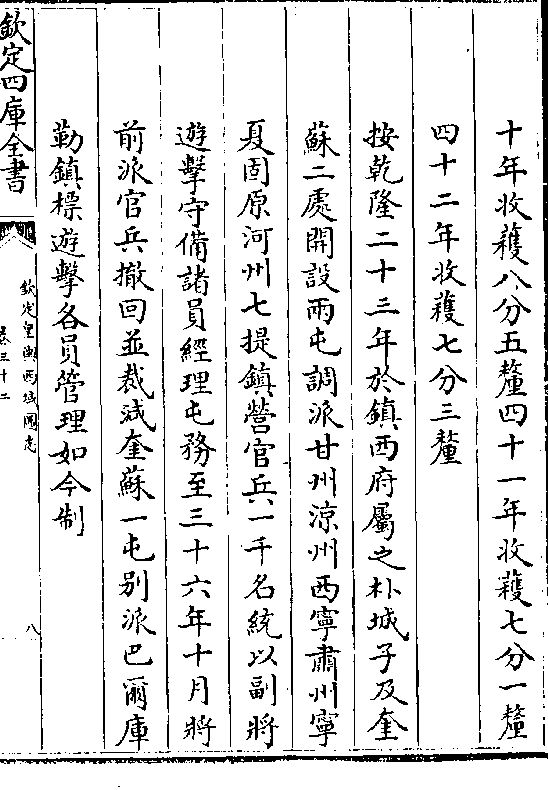 十年收穫八分五釐四十一年收穫七分一釐
四十二年收穫七分三釐
按乾隆二十三年於鎮西府屬之朴城子及奎
蘇二處開設兩屯調派甘州涼州西寧肅州寧
夏固原河州七提鎮營官兵一千名統以副將
遊擊守備諸員經理屯務至三十六年十月將
前派官兵撤回並裁減奎蘇一屯别派巴爾庫
勒鎮標遊擊各員管理如今制
欽定四庫全書
欽定皇輿西域圖志
卷三十二
八